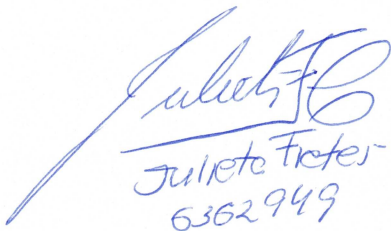 Julieta FC
Julieta Fretes
6362949